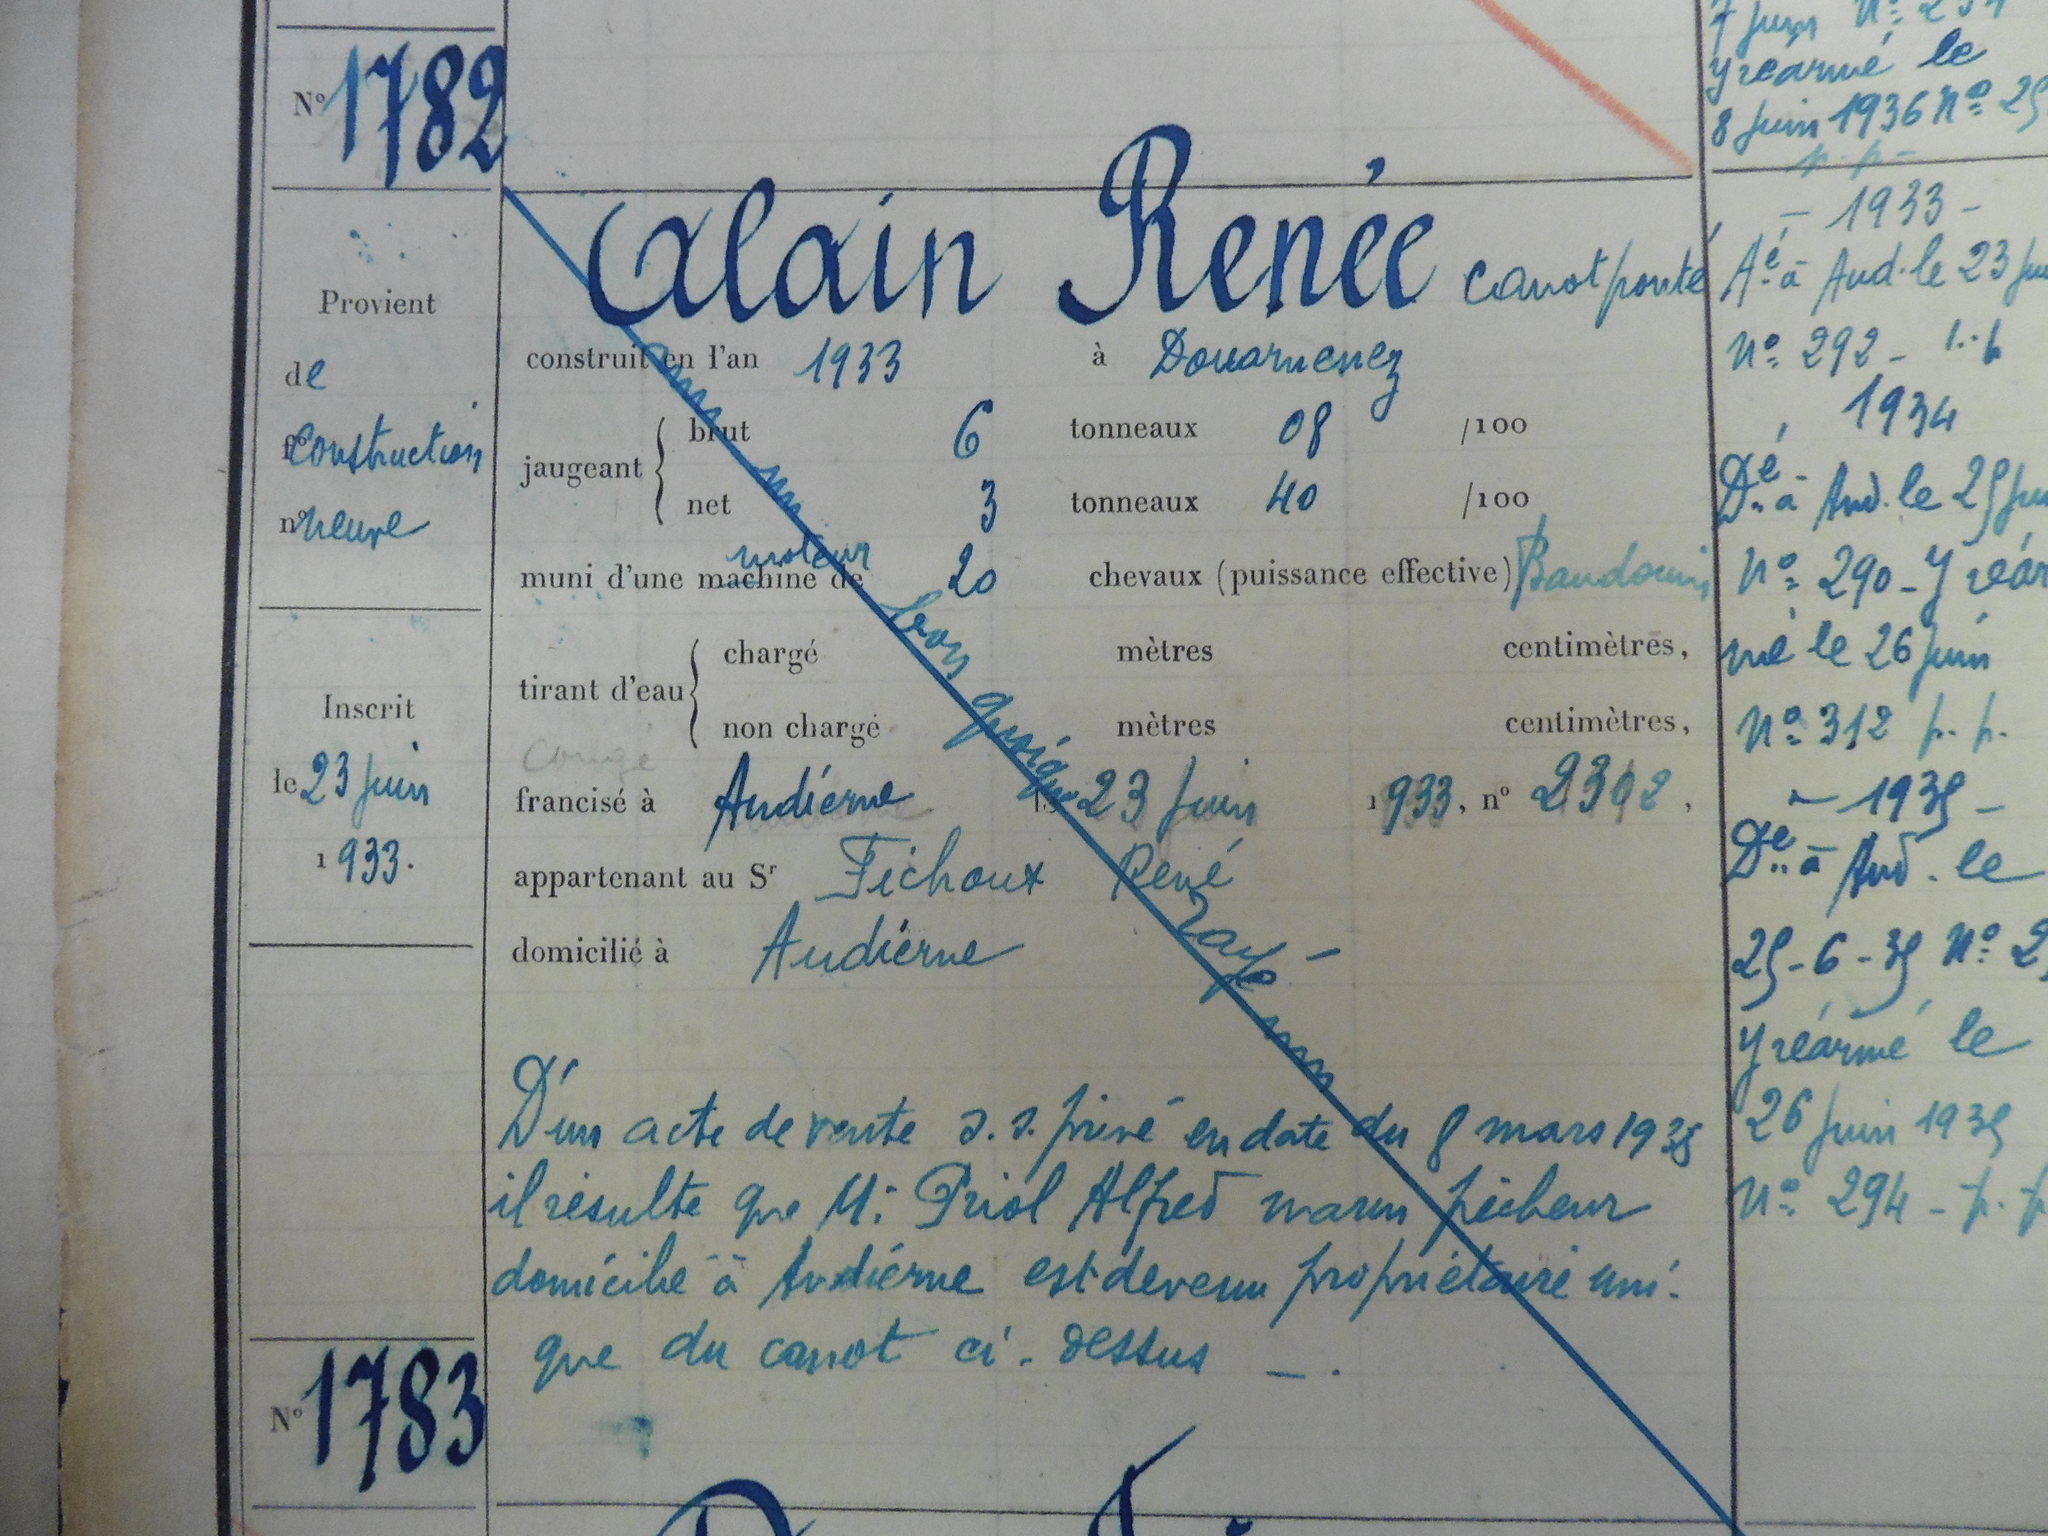 N° 1782
Alain Renée canot ponté
Provient
de
construction
neuve
Inscrit
le 23 juin
1933.
construit en l'an 1933 à Douarnenez
jaugeant brut 6 tonneaux 08 /100
net 3 tonneaux 40 /100
moteur
muni d'une machine de 20 chevaux (puissance effective) Baudouin
tirant d'eau chargé mètres centimètres,
non chargé mètres centimètres,
congé
francisé à Audierne le 23 juin 1933, n° 2302,
appartenant au Sr Fichoux René
domicilié à Audierne
rayé
D'un acte de vente s. s. privé en date du 8 mars 1935
il résulte que M. Priol Alfred marin pêcheur
domicilié à Audierne est devenu propriétaire uni-
que du canot ci-dessus — .
N° 1783
7 juin N°
y réarmé le
8 juin 1936 N°
p. p —
— 1933 —
Aé à Aud. le 23
N° 292 —
1934
Dé à Aud. le 25
N° 290 — y réar
mé le 26 juin
N° 312 p. p.
— 1935 —
Dé à Aud. le
25-6-35 N°
y réarmé le
26 juin 1935
N° 294 — p. p